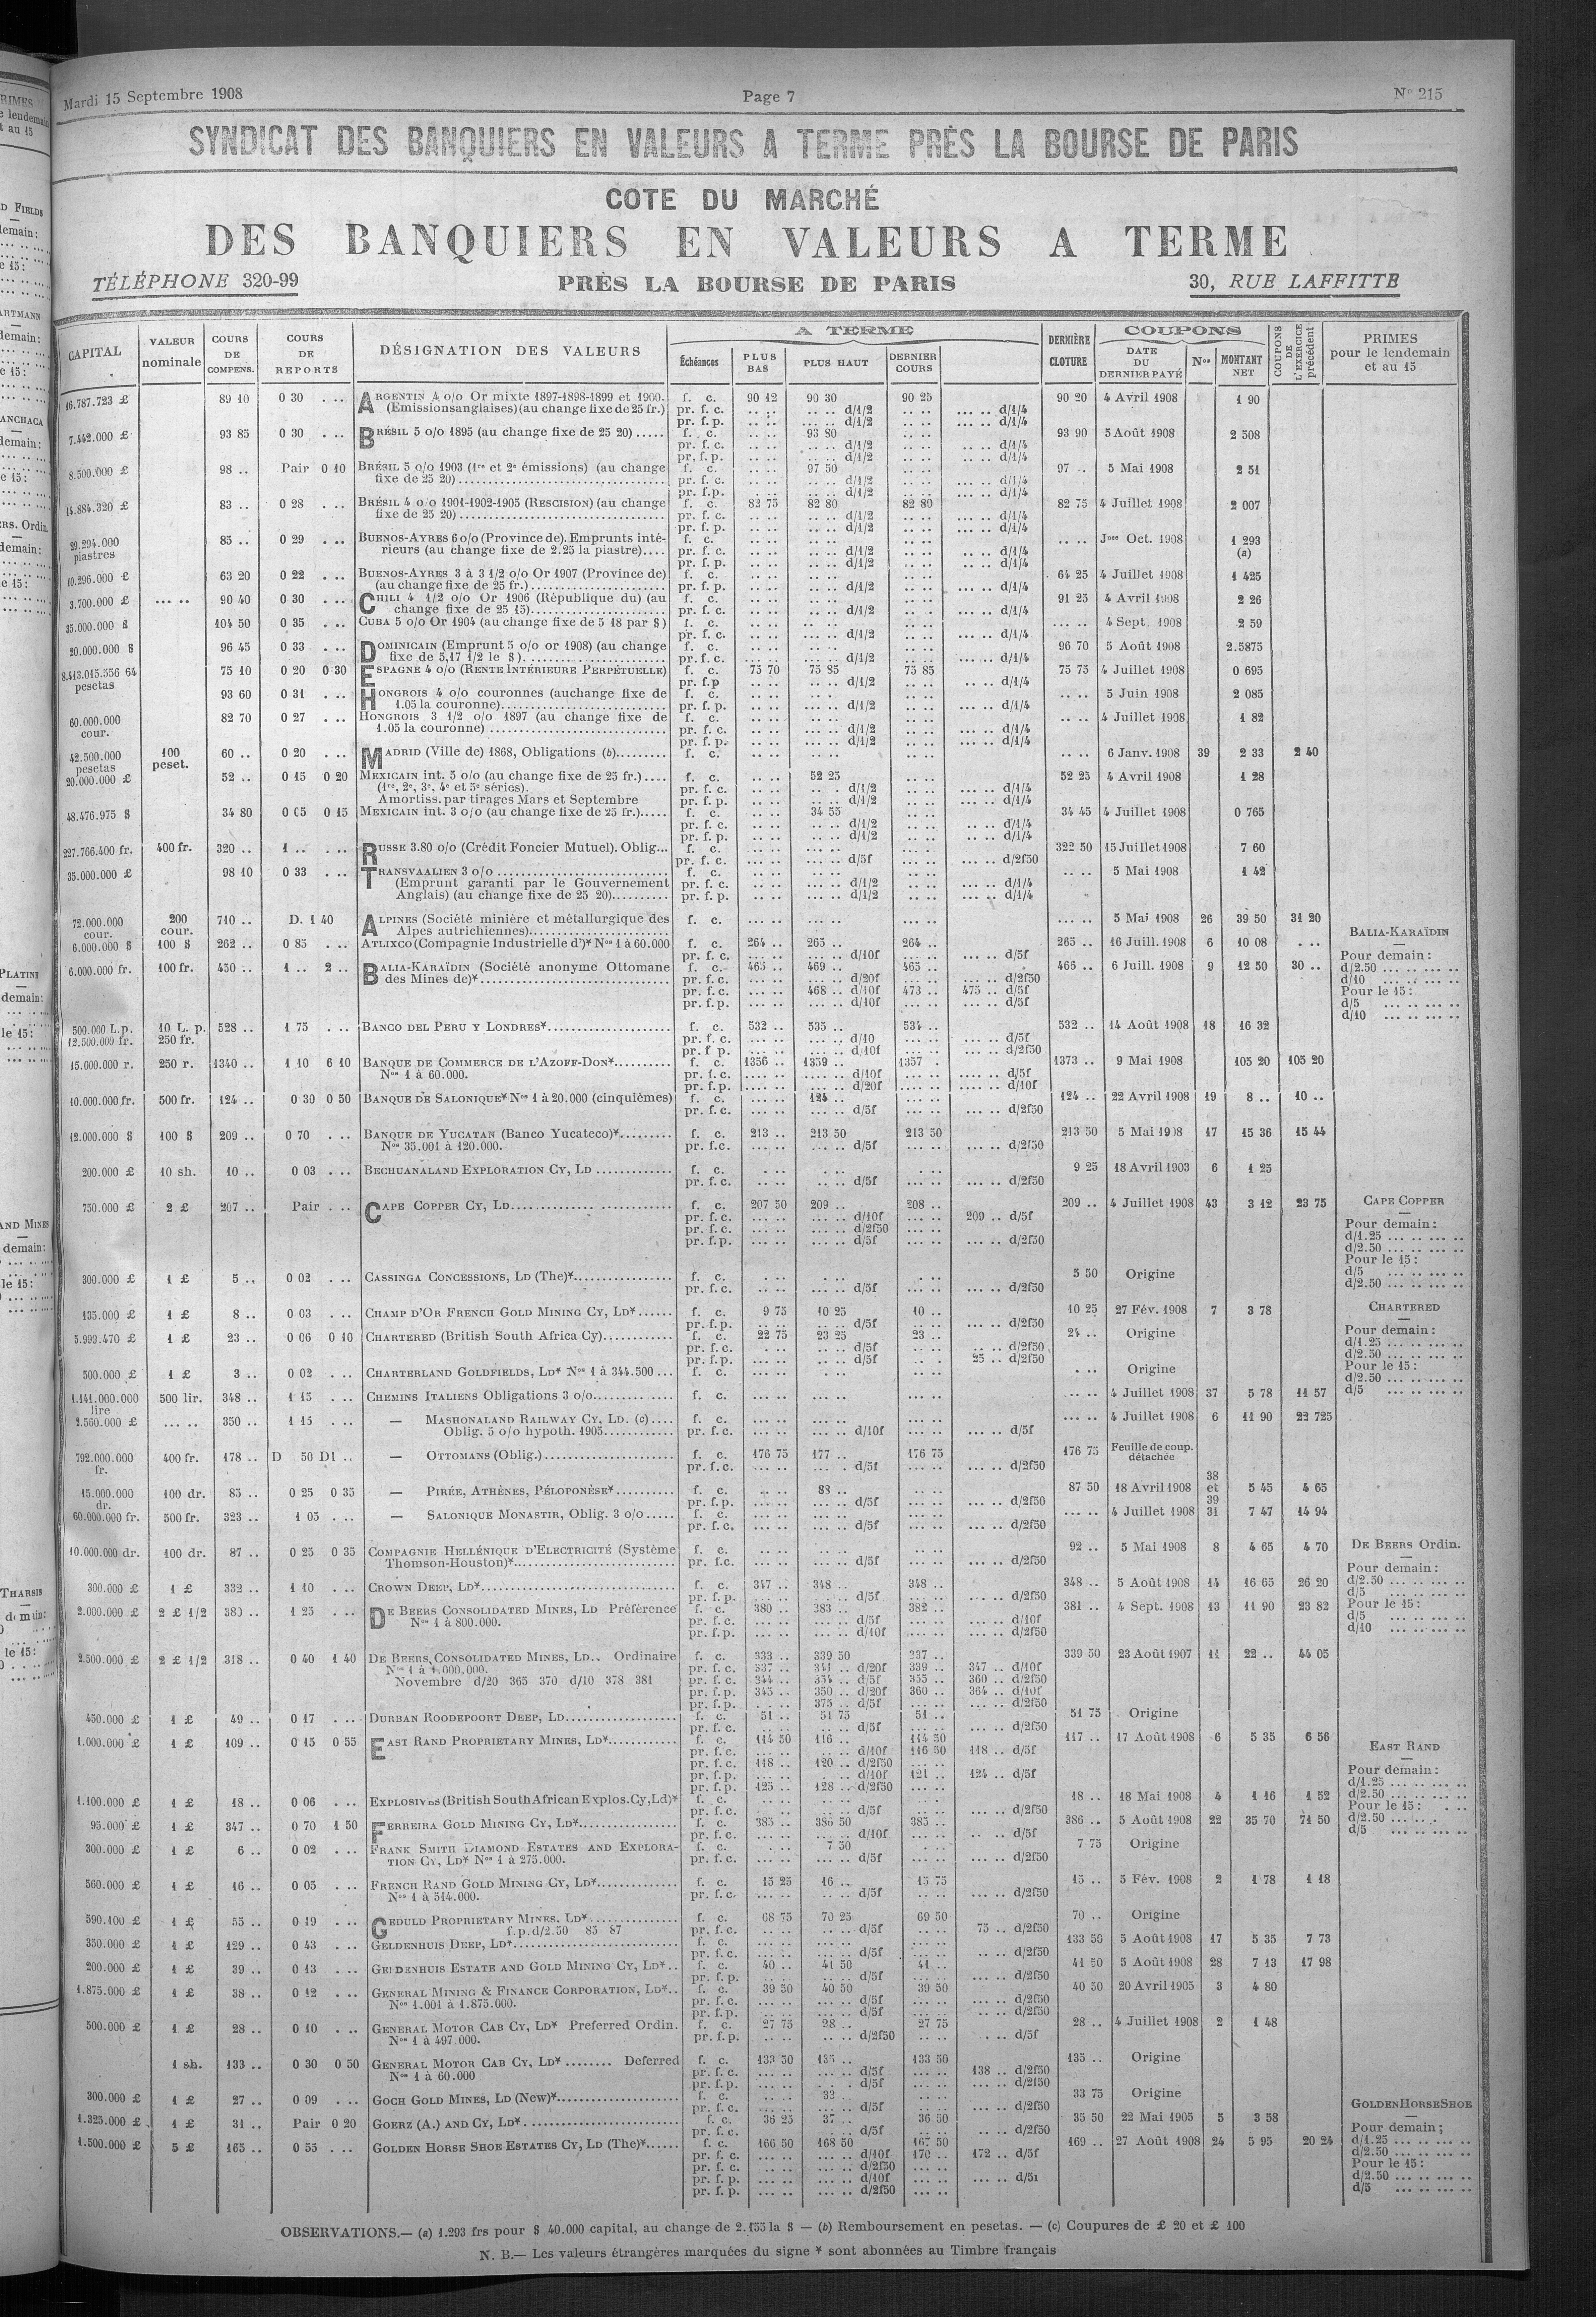 Mardi 15 Septembre 1908 Page 7 N° 215
SYNDICAT DES BANQUIERS EN VALEURS A TERME PRÈS LA BOURSE DE PARIS
COTE DU MARCHÉ
DES BANQUIERS EN VALEURS A TERME
TÉLÉPHONE 320-99 PRÈS LA BOURSE DE PARIS 30, RUE LAFFITTE
CAPITAL VALEUR nominale COURS DE COMPENS. COURS DE REPORTS DÉSIGNATION DES VALEURS A TERME Échéances PLUS BAS PLUS HAUT DERNIER COURS DERNIÈRE CLOTURE COUPONS DATE DU DERNIER PAYÉ Nos MONTANT NET COUPONS DE L'EXERCICE précédent PRIMES pour le lendemain et au 15
16.787.723 £ 89 10 0 30 . .. ARGENTIN 4 o/o Or mixte 1897-1898-1899 et 1900. f. c. 90 12 90 30 90 25 90 20 4 Avril 1908 1 90
(Emissions anglaises) (au change fixe de 25 fr.) pr. f. c. d/1/2 d/1/4
pr. f. p. d/1/2 d/1/4
7.442.000 £ 93 85 0 30 . .. BRÉSIL 5 o/o 1895 (au change fixe de 25 20) f. c. 93 80 93 90 5 Août 1908 2 508
pr. f. c. d/1/2 d/1/4
pr. f. p. d/1/2 d/1/4
8.500.000 £ 98 .. Pair 0 10 BRÉSIL 5 o/o 1903 (1re et 2e émissions) (au change f. c. 97 50 97 .. 5 Mai 1908 2 51
fixe de 25 20) pr. f. c. d/1/2 d/1/4
pr. f.p. d/1/2 d/1/4
14.884.320 £ 83 .. 0 28 . .. BRÉSIL 4 o/o 1901-1902-1905 (RESCISION) (au change f. c. 82 75 82 80 82 80 82 75 4 Juillet 1908 2 007
fixe de 25 20) pr. f. c. d/1/2 d/1/4
pr. f. p. d/1/2 d/1/4
29.294.000 piastres 85 .. 0 29 . .. BUENOS-AYRES 6 o/o (Province de). Emprunts inté- f. c. Jnee Oct. 1908 1 293
rieurs (au change fixe de 2.25 la piastre) pr. f. c. d/1/2 d/1/4 (a)
pr. f. p. d/1/2 d/1/4
10.296.000 £ 63 20 0 22 . .. BUENOS-AYRES 3 à 3 1/2 o/o Or 1907 (Province de) f. c. 64 25 4 Juillet 1908 1 425
(au change fixe de 25 fr.) pr. f. p. d/1/2 d/1/4
3.700.000 £ 90 40 0 30 . .. CHILI 4 1/2 o/o Or 1906 (République du) (au f. c. 91 25 4 Avril 1908 2 26
change fixe de 25 15) pr. f. c. d/1/2 d/1/4
35.000.000 $ 104 50 0 35 . .. CUBA 5 o/o Or 1904 (au change fixe de 5 18 par $) f. c. 4 Sept. 1908 2 59
pr. f. c. d/1/2 d/1/4
20.000.000 $ 96 45 0 33 . .. DOMINICAIN (Emprunt 5 o/o or 1908) (au change f. c. 96 70 5 Août 1908 2.5875
fixe de 5,17 1/2 le $) pr. f. c. d/1/2 d/1/4
8.413.015.556 64 pesetas 75 10 0 20 0 30 ESPAGNE 4 o/o (RENTE INTÉRIEURE PERPÉTUELLE) f. c. 75 70 75 85 75 85 75 75 4 Juillet 1908 0 695
pr. f.p d/1/2 d/1/4
93 60 0 31 . .. HONGROIS 4 o/o couronnes (au change fixe de f. c. 5 Juin 1908 2 085
1.05 la couronne) pr. f. p. d/1/2 d/1/4
60.000.000 cour. 82 70 0 27 . .. HONGROIS 3 1/2 o/o 1897 (au change fixe de f. c. 4 Juillet 1908 1 82
1.05 la couronne) pr. f. c. d/1/2 d/1/4
pr. f. p. d/1/2 d/1/4
42.500.000 pesetas 100 peset. 60 .. 0 20 . .. MADRID (Ville de) 1868, Obligations (b) f. c. 6 Janv. 1908 39 2 33 2 40
20.000.000 £ 52 .. 0 15 0 20 MEXICAIN int. 5 o/o (au change fixe de 25 fr.) f. c. 52 25 52 25 4 Avril 1908 1 28
(1re, 2e, 3e, 4e et 5e séries). pr. f. c. d/1/2 d/1/4
Amortiss. par tirages Mars et Septembre pr. f. p. d/1/2 d/1/4
48.476.975 $ 34 80 0 05 0 15 MEXICAIN int. 3 o/o (au change fixe de 25 fr.) f. c. 34 55 34 45 4 Juillet 1908 0 765
pr. f. c. d/1/2 d/1/4
pr. f. p. d/1/2 d/1/4
227.766.400 fr. 400 fr. 320 .. 1 .. . .. RUSSE 3.80 o/o (Crédit Foncier Mutuel). Oblig... f. c. 322 50 15 Juillet 1908 7 60
pr. f. c. d/5f d/2f50
35.000.000 £ 98 10 0 33 . .. TRANSVAALIEN 3 o/o f. c. 5 Mai 1908 1 42
(Emprunt garanti par le Gouvernement pr. f. c. d/1/2 d/1/4
Anglais) (au change fixe de 25 20) pr. f. p. d/1/2 d/1/4
72.000.000 cour. 200 cour. 710 .. D. 1 40 ALPINES (Société minière et métallurgique des f. c. 5 Mai 1908 26 39 50 31 20
Alpes autrichiennes)
6.000.000 $ 100 $ 262 .. 0 85 . .. ATLIXCO (Compagnie Industrielle d')* Nos 1 à 60.000 f. c. 264 .. 265 .. 264 .. 265 .. 16 Juill. 1908 6 10 08
pr. f. c. d/10f d/5f
6.000.000 fr. 100 fr. 450 .. 1 .. 2 .. BALIA-KARAÏDIN (Société anonyme Ottomane f. c. 465 .. 469 .. 465 .. 466 .. 6 Juill. 1908 9 12 50 30 ..
des Mines de)* pr. f. c. d/20f d/2f50
pr. f. c. 468 .. d/10f 473 .. 475 .. d/5f
pr. f. p. d/10f d/5f
BALIA-KARAÏDIN
Pour demain :
d/2.50
d/10
Pour le 15 :
d/5
d/10
500.000 L.p. 12.500.000 fr. 10 L. p. 250 fr. 528 .. 1 75 . .. BANCO DEL PERU Y LONDRES* f. c. 532 .. 535 .. 534 .. 532 .. 14 Août 1908 18 16 32
pr. f. c. d/10 d/5f
pr. f p. d/10f d/2f50
15.000.000 r. 250 r. 1340 .. 1 10 6 10 BANQUE DE COMMERCE DE L'AZOFF-DON* f. c. 1356 .. 1359 .. 1357 . 1373 .. 9 Mai 1908 105 20 105 20
Nos 1 à 60.000. pr. f. c. d/10f d/5f
pr. f. p. d/20f d/10f
10.000.000 fr. 500 fr. 124 .. 0 30 0 50 BANQUE DE SALONIQUE* Nos 1 à 20.000 (cinquièmes) f. c. 124 .. 124 .. 22 Avril 1908 19 8 .. 10 ..
pr. f. c. d/5f d/2f50
12.000.000 $ 100 $ 209 .. 0 70 . .. BANQUE DE YUCATAN (Banco Yucateco)* f. c. 213 .. 213 50 213 50 213 50 5 Mai 1908 17 15 36 15 44
Nos 35.001 à 120.000. pr. f.c. d/5f d/2f50
200.000 £ 10 sh. 10 .. 0 03 . .. BECHUANALAND EXPLORATION CY, LD f. c. 9 25 18 Avril 1903 6 1 25
pr. f. c. d/5f d/2f50
750.000 £ 2 £ 207 .. Pair . .. CAPE COPPER CY, LD f. c. 207 50 209 .. 208 .. 209 .. 4 Juillet 1908 43 3 12 23 75
pr. f. c. d/10f 209 .. d/5f
pr. f. c. d/2f50
pr. f. p. d/5f d/2f50
CAPE COPPER
Pour demain :
d/1.25
d/2.50
Pour le 15 :
d/5
d/2.50
300.000 £ 1 £ 5 .. 0 02 . .. CASSINGA CONCESSIONS, LD (The)* f. c. 5 50 Origine
pr. f. c. d/5f d/2f50
135.000 £ 1 £ 8 .. 0 03 . .. CHAMP D'OR FRENCH GOLD MINING CY, LD* f. c. 9 75 10 25 10 .. 10 25 27 Fév. 1908 7 3 78
pr. f. p. d/5f d/2f50
5.999.470 £ 1 £ 23 .. 0 06 0 10 CHARTERED (British South Africa Cy) f. c. 22 75 23 25 23 .. 24 .. Origine
pr. f. c. d/5f d/2f50
pr. f. p. d/5f 25 .. d/2f50
CHARTERED
Pour demain :
d/1.25
d/2.50
Pour le 15 :
d/2.50
d/5
500.000 £ 1 £ 3 .. 0 02 . .. CHARTERLAND GOLDFIELDS, LD* Nos 1 à 344.500 f. c. Origine
1.141.000.000 lire 500 lir. 348 .. 1 15 . .. CHEMINS ITALIENS Obligations 3 o/o f. c. 4 Juillet 1908 37 5 78 11 57
2.500.000 £ 350 .. 1 15 . .. — MASHONALAND RAILWAY CY, LD. (c) f. c. 4 Juillet 1908 6 11 90 22 725
Oblig. 5 o/o hypoth. 1905 pr. f. c. d/10f d/5f
792.000.000 fr. 400 fr. 178 .. D 50 D1 .. — OTTOMANS (Oblig.) f. c. 176 75 177 .. 176 75 176 75 Feuille de coup. détachée
pr. f. c. d/5f d/2f50
15.000.000 dr. 100 dr. 85 .. 0 25 0 35 — PIRÉE, ATHÈNES, PÉLOPONÈSE* f. c. 88 .. 87 50 18 Avril 1908 38 et 39 5 45 4 65
pr. f. p. d/5f d/2f50
60.000.000 fr. 500 fr. 323 .. 1 05 . .. — SALONIQUE MONASTIR, Oblig. 3 o/o f. c. 4 Juillet 1908 31 7 47 14 94
pr. f. c. d/5f
10.000.000 dr. 100 dr. 87 .. 0 25 0 35 COMPAGNIE HELLÉNIQUE D'ELECTRICITÉ (Système f. c. 92 .. 5 Mai 1908 8 4 65 4 70
Thomson-Houston)* pr. f.c. d/5f d/2f50
300.000 £ 1 £ 332 .. 1 10 . .. CROWN DEEP, LD* f. c. 347 .. 348 .. 348 .. 348 .. 5 Août 1908 14 16 65 26 20
pr. f. p. d/5f d/2f50
2.000.000 £ 2 £ 1/2 380 .. 1 25 . .. DE BEERS CONSOLIDATED MINES, LD Préférence f. c. 380 .. 383 .. 382 .. 381 .. 4 Sept. 1908 13 11 90 23 82
Nos 1 à 800.000. pr. f. c. d/5f d/10f
pr. f. p. d/10f d/2f50
DE BEERS Ordin.
Pour demain :
d/2.50
d/5
Pour le 15 :
d/5
d/10
2.500.000 £ 2 £ 1/2 318 .. 0 40 1 40 DE BEERS CONSOLIDATED MINES, LD.. Ordinaire f. c. 333 .. 339 50 337 .. 339 50 23 Août 1907 11 22 .. 44 05
Nos 1 à 1.000.000. pr. f. c. 337 .. 341 .. d/20f 339 .. 347 .. d/10f
Novembre d/20 365 370 d/10 378 381 pr. f. c. 344 .. 354 .. d/5f 355 .. 360 .. d/2f50
pr. f. p. 345 .. 350 .. d/20f 360 .. 364 .. d/10f
pr. f. p. 375 .. d/5f d/2f50
450.000 £ 1 £ 49 .. 0 17 . .. DURBAN ROODEPOORT DEEP, LD f. c. 51 .. 51 75 51 .. 51 75 Origine
pr. f. c. d/5f d/2f50
1.000.000 £ 1 £ 109 .. 0 15 0 55 EAST RAND PROPRIETARY MINES, LD* f. c. 114 50 116 .. 114 50 117 .. 17 Août 1908 6 5 35 6 56
pr. f. c. d/10f 116 50 118 .. d/5f
pr. f. c. 118 .. 120 .. d/2f50
pr. f. p. d/10f 121 .. 124 .. d/5f
pr. f. p. 125 .. 128 .. d/2f50
EAST RAND
Pour demain :
d/1.25
d/2.50
Pour le 15 :
d/2.50
d/5
1.100.000 £ 1 £ 18 .. 0 06 . .. EXPLOSIVES (British South African Explos. Cy, Ld)* f. c. 18 .. 18 Mai 1908 4 1 16 1 52
pr. f. c. d/5f d/2f50
95.000 £ 1 £ 347 .. 0 70 1 50 FERREIRA GOLD MINING CY, LD* f. c. 385 .. 386 50 385 .. 386 .. 5 Août 1908 22 35 70 71 50
pr. f. c. d/10f d/5f
300.000 £ 1 £ 6 .. 0 02 . .. FRANK SMITH DIAMOND ESTATES AND EXPLORA- f. c. 7 50 7 75 Origine
TION CY, LD* Nos 1 à 275.000. pr. f. c. d/5f d/2f50
560.000 £ 1 £ 16 .. 0 05 . .. FRENCH RAND GOLD MINING CY, LD* f. c. 15 25 16 .. 15 75 15 .. 5 Fév. 1908 2 1 78 1 18
Nos 1 à 514.000. pr. f. c. d/5f d/2f50
590.100 £ 1 £ 55 .. 0 19 . .. GEDULD PROPRIETARY MINES, LD* f. c. 68 75 70 25 69 50 70 .. Origine
f.p.d/2.50 85 87 pr. f. c. d/5f 75 .. d/2f50
350.000 £ 1 £ 129 .. 0 43 . .. GELDENHUIS DEEP, LD* f. c. 133 50 5 Août 1908 17 5 35 7 73
pr. f. c. d/5f d/2f50
200.000 £ 1 £ 39 .. 0 13 . .. GELDENHUIS ESTATE AND GOLD MINING CY, LD* f. c. 40 .. 41 50 41 .. 41 50 5 Août 1908 28 7 13 17 98
pr. f. p. d/5f d/2f50
1.875.000 £ 1 £ 38 .. 0 12 . .. GENERAL MINING & FINANCE CORPORATION, LD* f. c. 39 50 40 50 39 50 40 50 20 Avril 1905 3 4 80
Nos 1.001 à 1.875.000. pr. f. c. d/5f d/2f50
pr. f. p. d/5f d/2f50
500.000 £ 1 £ 28 .. 0 10 . .. GENERAL MOTOR CAB CY, LD* Preferred Ordin. f. c. 27 75 28 .. 27 75 28 .. 4 Juillet 1908 2 1 48
Nos 1 à 497.000. pr. f. p. d/2f50 d/5f
1 sh. 133 .. 0 30 0 50 GENERAL MOTOR CAB CY, LD* Deferred f. c. 133 50 135 .. 133 50 135 .. Origine
Nos 1 à 60.000 pr. f. c. d/5f 138 .. d/2f50
pr. f. p. d/5f d/2f50
300.000 £ 1 £ 27 .. 0 09 . .. GOCH GOLD MINES, LD (New)* f. c. 32 .. 33 75 Origine
pr. f. c. d/5f d/2f50
1.325.000 £ 1 £ 31 .. Pair 0 20 GOERZ (A.) AND CY, LD* f. c. 36 25 37 .. 36 50 35 50 22 Mai 1905 5 3 58
pr. f. c. d/5f d/2f50
1.500.000 £ 5 £ 165 .. 0 55 . .. GOLDEN HORSE SHOE ESTATES CY, LD (The)* f. c. 166 50 168 50 167 50 169 .. 27 Août 1908 24 5 95 20 24
pr. f. c. d/10f 170 .. 172 .. d/5f
pr. f. c. d/2f50
pr. f. p. d/10f d/5f
pr. f. p. d/2f50
GOLDEN HORSE SHOE
Pour demain ;
d/1.25
d/2.50
Pour le 15 :
d/2.50
d/5
OBSERVATIONS.— (a) 1.293 frs pour $ 40.000 capital, au change de 2.155 la $ — (b) Remboursement en pesetas. — (c) Coupures de £ 20 et £ 100
N. B.— Les valeurs étrangères marquées du signe * sont abonnées au Timbre français